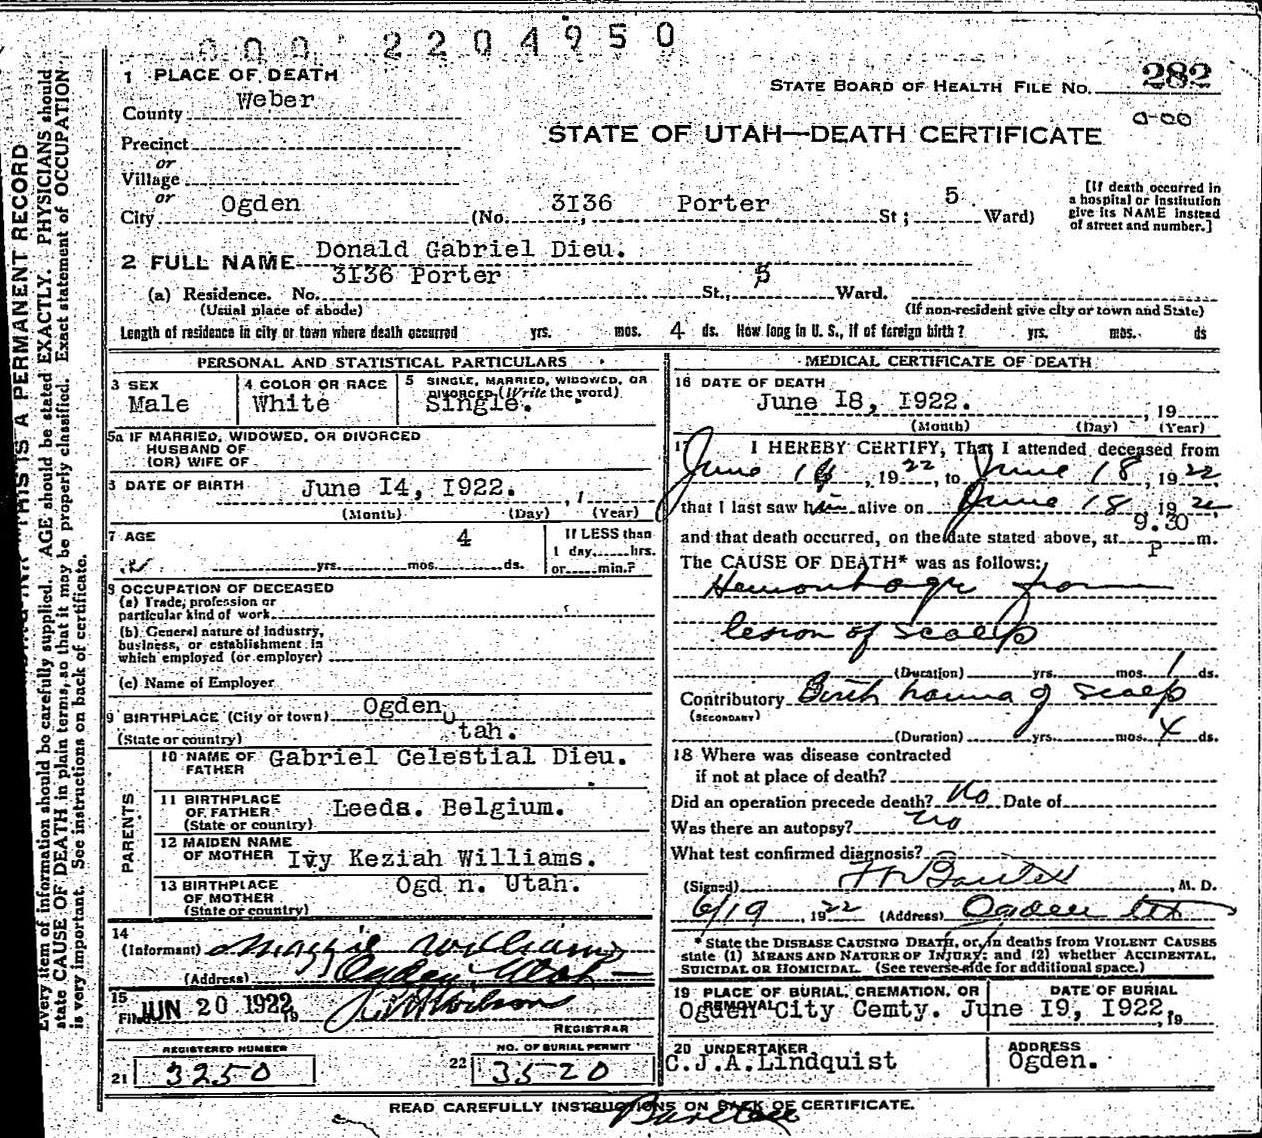 000 2204950
1 PLACE OF DEATH
County Weber
STATE BOARD OF HEALTH FILE No. 282
0-00
STATE OF UTAH—DEATH CERTIFICATE
Precinct
or
Village
or
City Ogden (No. 3I36 Porter St; 5 Ward)
[If death occurred in
a hospital or institution
give its NAME instead
of street and number.]
2 FULL NAME Donald Gabriel Dieu.
(a) Residence. No. 3I36 Porter St., 5 Ward.
(Usual place of abode) (If non-resident give city or town and State)
Length of residence in city or town where death occurred yrs. mos. 4 ds. How long in U. S., if of foreign birth? yrs. mos. ds
PERSONAL AND STATISTICAL PARTICULARS
3 SEX
Male
4 COLOR OR RACE
White
5 SINGLE, MARRIED, WIDOWED, OR
DIVORCED (Write the word)
Single.
5a IF MARRIED, WIDOWED, OR DIVORCED
HUSBAND OF
(OR) WIFE OF
DATE OF BIRTH June I4, I922.
(Month) (Day) (Year)
7 AGE
yrs. mos. 4 ds.
If LESS than
1 day, hrs.
or min.?
OCCUPATION OF DECEASED
(a) Trade, profession or
particular kind of work
(b) General nature of industry,
business, or establishment in
which employed (or employer)
(c) Name of Employer
9 BIRTHPLACE (City or town) Ogden
(State or country) Utah.
PARENTS
10 NAME OF
FATHER Gabriel Celestial Dieu.
11 BIRTHPLACE
OF FATHER
(State or country) Leeds. Belgium.
12 MAIDEN NAME
OF MOTHER Ivy Keziah Williams.
13 BIRTHPLACE
OF MOTHER
(State or country) Ogd n. Utah.
14
(Informant) Maggie Williams
(Address) Ogden Utah
15
Filed JUN 20 1922 19
REGISTRAR
REGISTERED NUMBER
21 3250
NO. OF BURIAL PERMIT
22 3520
MEDICAL CERTIFICATE OF DEATH
16 DATE OF DEATH
June I8, I922. , 19
(Month) (Day) (Year)
17 I HEREBY CERTIFY, That I attended deceased from
June , 1922, to June 18, 1922
that I last saw him alive on June 18, 1922
and that death occurred, on the date stated above, at 9.30 P m.
The CAUSE OF DEATH* was as follows:
Hemorrhage from
lesion of scalp
(Duration) yrs. mos. 1 ds.
Contributory Birth trauma of scalp
(SECONDARY)
(Duration) yrs. mos. 4 ds.
18 Where was disease contracted
if not at place of death?
Did an operation precede death? No Date of
Was there an autopsy? No
What test confirmed diagnosis?
(Signed) , M. D.
6/19, 1922 (Address) Ogden Ut
* State the DISEASE CAUSING DEATH, or, in deaths from VIOLENT CAUSES
state (1) MEANS AND NATURE OF INJURY; and (2) whether ACCIDENTAL,
SUICIDAL OR HOMICIDAL. (See reverse side for additional space.)
19 PLACE OF BURIAL, CREMATION, OR
REMOVAL
Ogden City Cemty.
DATE OF BURIAL
June I9, I922, 19
20 UNDERTAKER
C.J.A.Lindquist
ADDRESS
Ogden.
READ CAREFULLY INSTRUCTIONS ON BACK OF CERTIFICATE.
THIS IS A PERMANENT RECORD
Every item of information should be carefully supplied. AGE should be stated EXACTLY. PHYSICIANS should
state CAUSE OF DEATH in plain terms, so that it may be properly classified. Exact statement of OCCUPATION
is very important. See instructions on back of certificate.